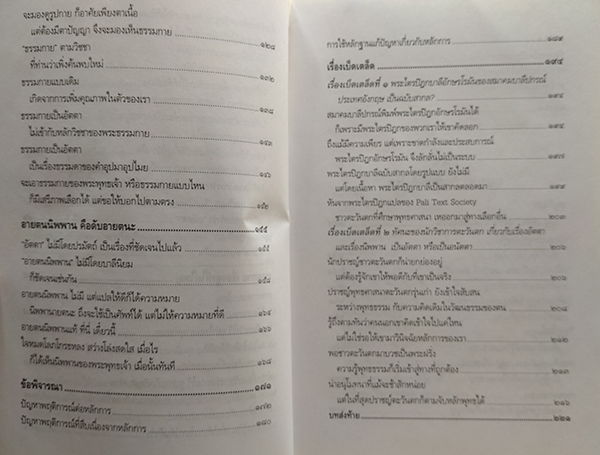 จะมองดูรูปกาย ก็อาศัยเพียงตาเนื้อ
แต่ต้องมีตาปัญญา จึงจะมองเห็นธรรมกาย ๑๒๘
"ธรรมกาย" ตามวิชชา
ที่ท่านว่าเพิ่งค้นพบใหม่ ๑๓๒
ธรรมกายแบบเดิม
เกิดจากการเพิ่มคุณภาพในตัวของเรา ๑๓๘
ธรรมกายเป็นอัตตา
ไม่เข้ากับหลักวิชชาของพระธรรมกาย ๑๔๓
ธรรมกายเป็นอัตตา
เป็นเรื่องธรรมดาของคำอุปมาอุปไมย ๑๔๖
จะเอาธรรมกายของพระพุทธเจ้า หรือธรรมกายแบบไหน
ก็มีเสรีภาพเลือกได้ แต่ขอให้บอกไปตามตรง ๑๕๒
อายตนนิพพาน คือดับอายตนะ ๑๕๕
"อัตตา" ไม่มีโดยปรมัตถ์ เป็นเรื่องที่ชัดเจนไปแล้ว ๑๕๕
"อายตนนิพพาน" ไม่มีโดยบาลีนิยม
ก็ชัดเจนเช่นกัน ๑๕๘
อายตนนิพพาน ไม่มี แต่แปลให้ดีก็ได้ความหมาย
นิพพานายตนะ ถึงจะใช้เป็นศัพท์ได้ แต่ไม่ให้ความหมายที่ดี ๑๖๔
อายตนนิพพานแท้ ที่นี่ เดี๋ยวนี้ ๑๖๖
ใจหมดโลภโกรธหลง สว่างโล่งสดใส เมื่อไร
ก็ได้เห็นนิพพานของพระพุทธเจ้า เมื่อนั้นทันที ๑๖๘
ข้อพิจารณา ๑๗๑
ปัญหาพฤติการณ์ต่อหลักการ ๑๗๒
ปัญหาพฤติการณ์ที่สืบเนื่องจากหลักการ ๑๘๐
การใช้หลักฐานแก้ปัญหาเกี่ยวกับหลักการ ๑๘๙
เรื่องเบ็ดเตล็ด ๑๙๔
เรื่องเบ็ดเตล็ดที่ ๑ พระไตรปิฎกบาลีอักษรโรมันของสมาคมบาลีปกรณ์
ประเทศอังกฤษ เป็นฉบับสากล? ๑๙๔
สมาคมบาลีปกรณ์พิมพ์พระไตรปิฎกอักษรโรมันได้
ก็เพราะมีพระไตรปิฎกของพวกเราให้เขาคัดลอก ๑๙๔
ถึงแม้มีความเพียร แต่เพราะขาดกำลังและประสบการณ์
พระไตรปิฎกอักษรโรมัน จึงลักลั่นไม่เป็นระบบ ๑๙๗
พระไตรปิฎกบาลีฉบับสากลโดยรูปแบบ ยังไม่มี
แต่โดยเนื้อหา พระไตรปิฎกบาลีเป็นสากลตลอดมา
หันจากพระไตรปิฎกแปลของ Pali Text Society
ชาวตะวันตกที่ศึกษาพุทธศาสนา เหออกมาสู่ทางเลือกอื่น
เรื่องเบ็ดเตล็ดที่ ๒ ทัศนะของนักวิชาการตะวันตก เกี่ยวกับเรื่องอัตตา
และเรื่องนิพพาน เป็นอัตตา หรือเป็นอนัตตา ๒๐๖
นักปราชญ์ชาวตะวันตกก็น่ายกย่องอยู่
แต่ต้องรู้จักเขาให้พอดีกับที่เขาเป็นจริง
ปราชญ์พุทธศาสนาตะวันตกรุ่นเก่า ยังเข้าใจสับสน
ระหว่างพุทธธรรม กับความคิดเดิมในวัฒนธรรมของตน
รู้ถึงตามทันว่าคนนอกเขาคิดเข้าใจไปแค่ไหน
แต่ไม่ใช่รอให้เขามาวินิจฉัยหลักการของเรา
พอชาวตะวันตกมาบวชเป็นพระฝรั่ง
ความรู้พุทธธรรมก็เริ่มเข้าสู่ทางที่ถูกต้อง ๒๑๓
น่าอนุโมทนาที่แม้จะช้าสักหน่อย
แต่ในที่สุดปราชญ์ตะวันตกก็ตามจับหลักพุทธได้ ๒๑๖
บทส่งท้าย ๒๒๑